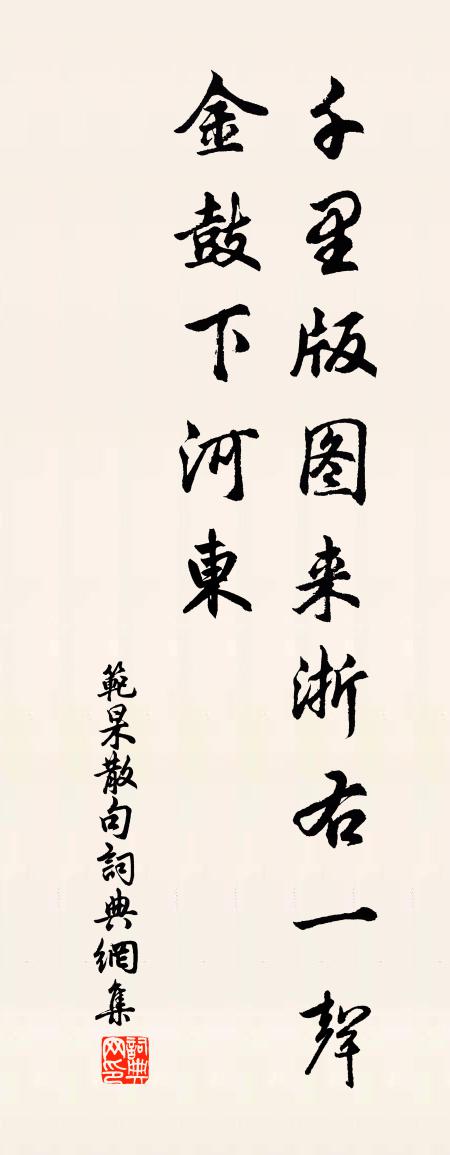 千里版图来浙右一聲
金鼓下河東
範杲散句詞典網集
詞典网印